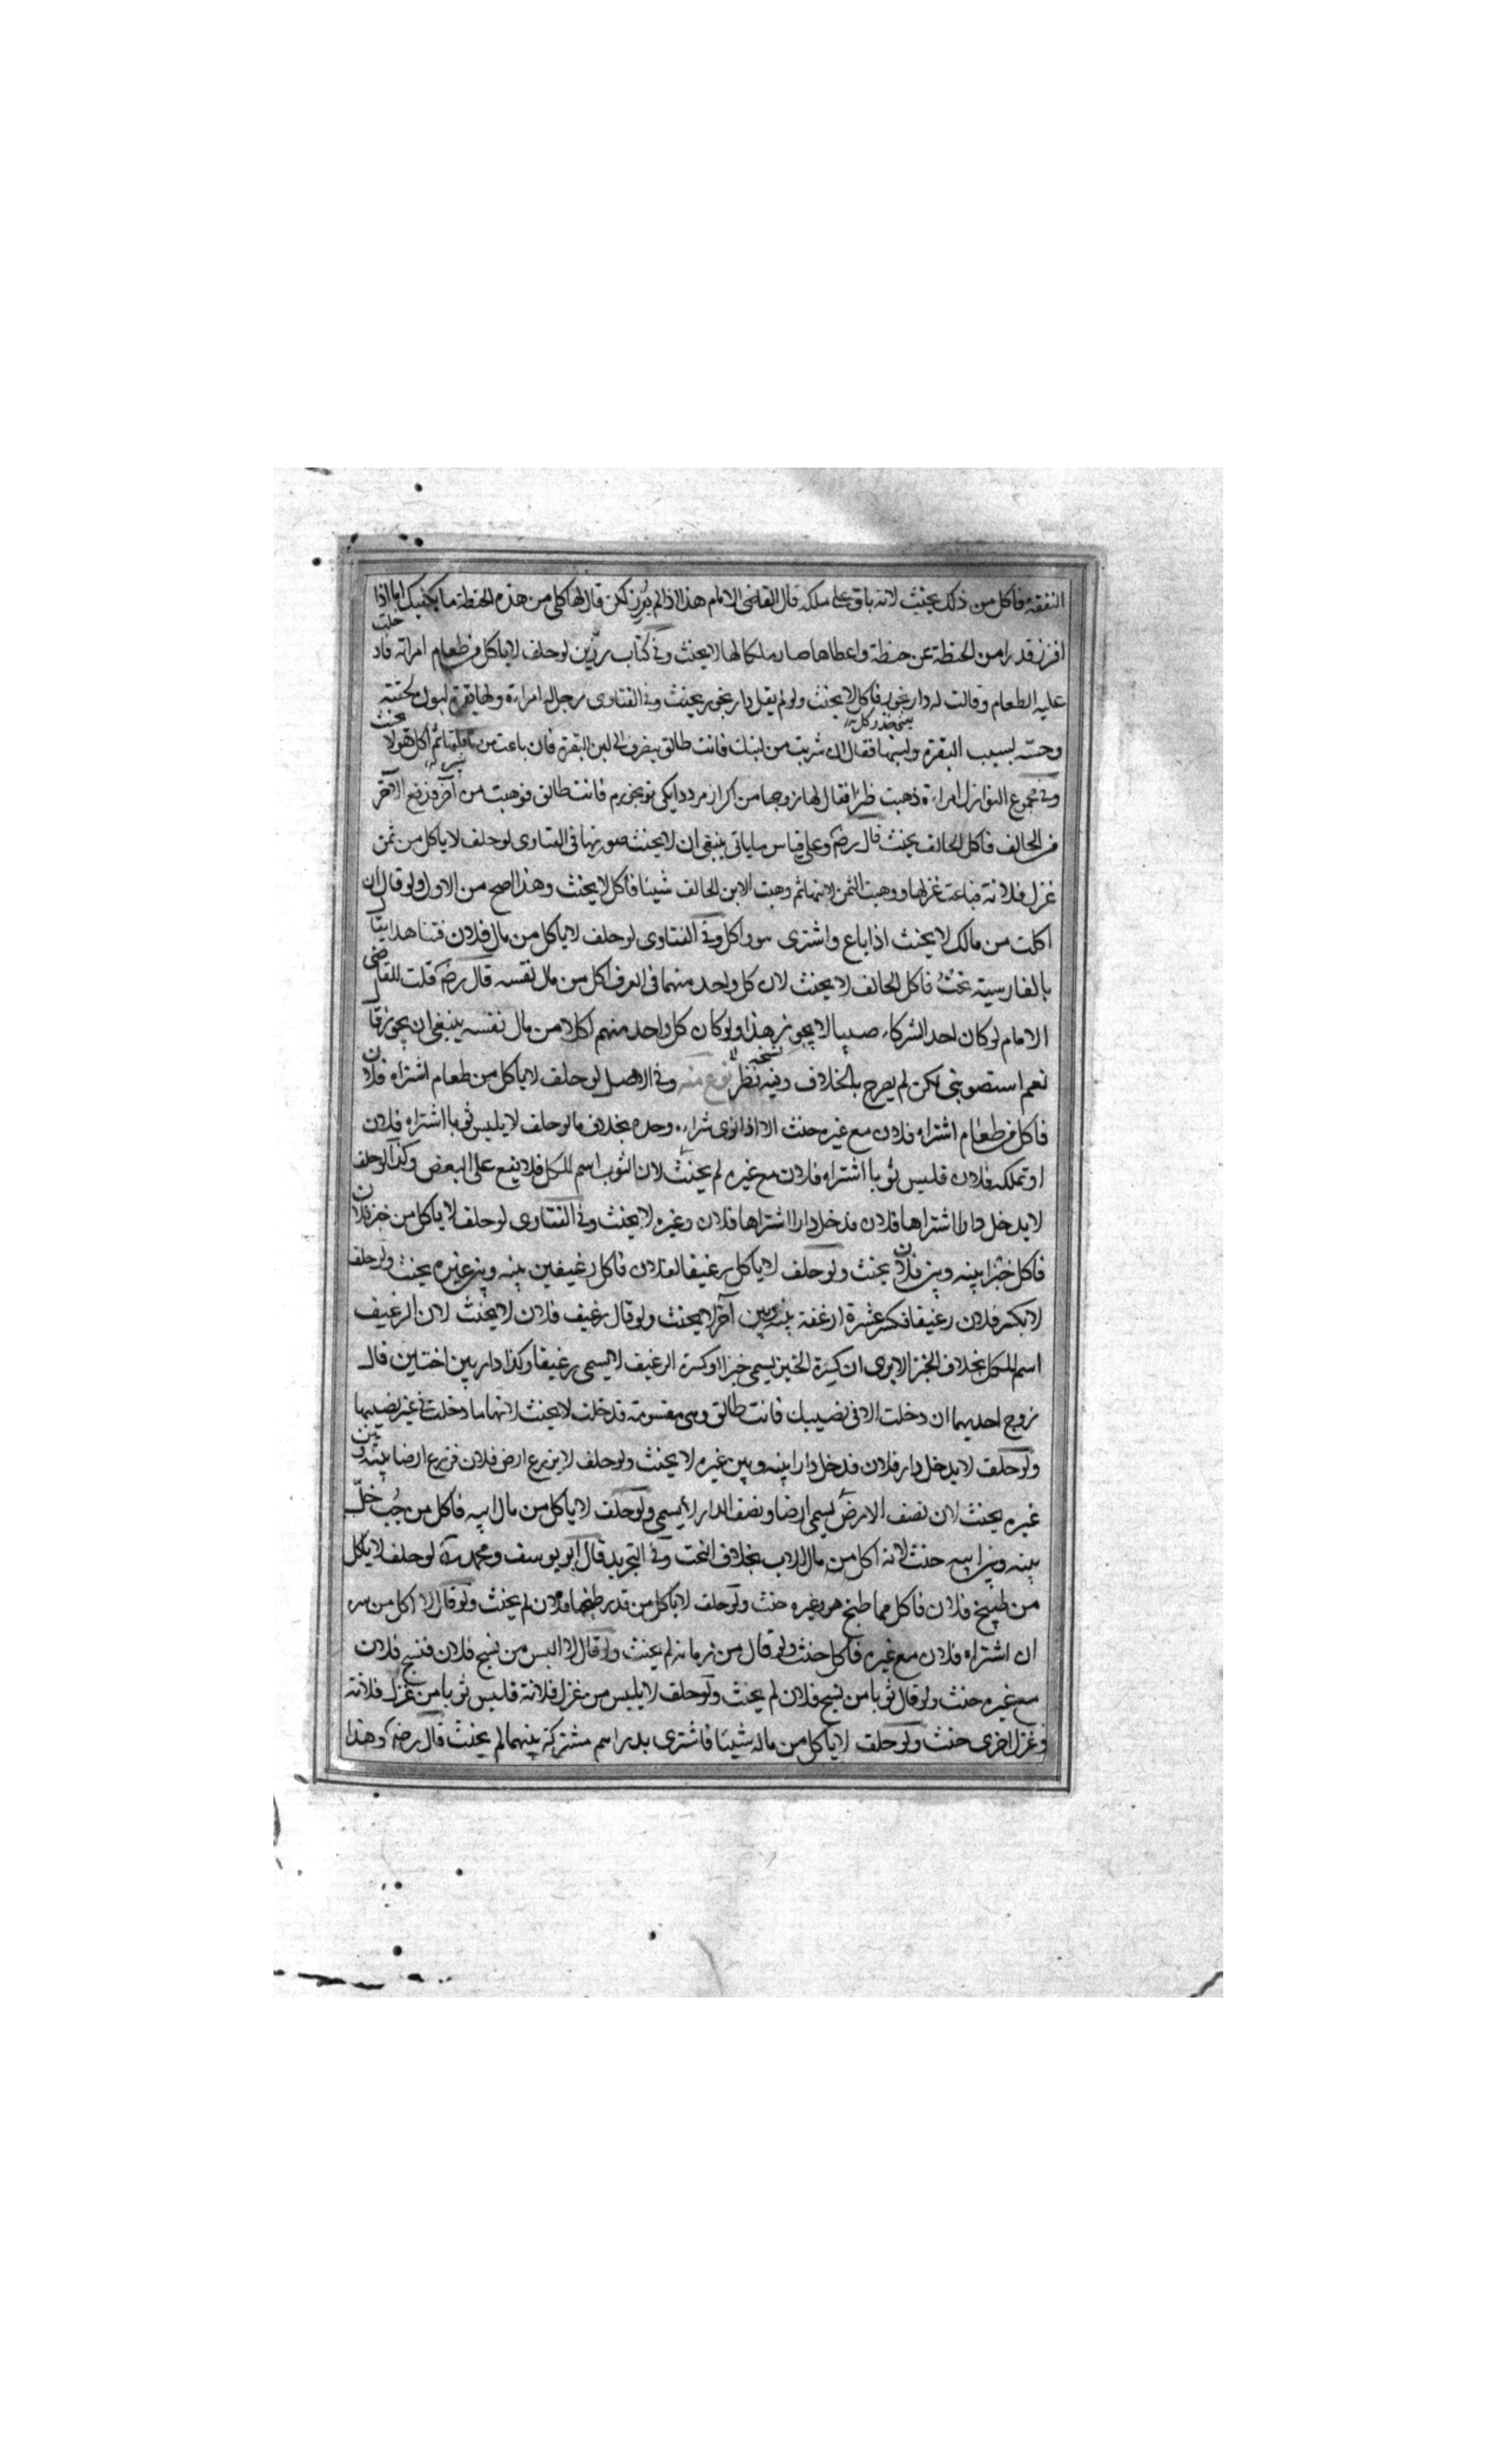 النفقة فاكل من ذلك يحنث لانه باق على ملكه قال القاضي الامام هذا اذا لم يفرز لكن قال لها كلي من هذه الحنطة ما يكفيك اما اذا
افرز قدرا من الحنطة عن حنطة واعطاها صار ملكا لها لا يحنث وفي كتاب رزين لو حلف لا ياكل من طعام امراته فاد خلت
عليه الطعام وقالت له دار بخور فاكل لا يحنث ولو لم يقل دار بخور يحنث وفي الفتاوى رجل له امراءة ولها بقرة لبون
بسبب البقرة ولبنها فقال ان شربت من لبنك فانت طالق ينصرف الى لبن البقرة فان باعت من
وفي مجموع النوازل امراءة ذهبت فقال لها زوجها من اكر از مردد فانت طالق فوهبت من آخر فدفع الاخر
فاكل الحالف يحنث قال رضه وعلى قياس ما ياتي ينبغي ان لا يحنث صورتها في الفتاوى لو حلف لا ياكل من ثمن
غزل فلانة فباعت غزلها ووهبت الثمن لابنها ثم وهبت الابن الحالف شيئا فاكل لا يحنث وهذا اصح من الاول ولو قال ان
اكلت من مالك لا يحنث اذا باع واشترى واكل وفي الفتاوى لو حلف لا ياكل من مال فلان فتناهدا يقال
بالفارسية فاكل الحالف لا يحنث لان كل واحد منهما في العرف اكل من مال نفسه قال رضه قلت للقاضي
الامام لو كان احد الشركاء صبيا لا يجوز هذا ولو كان كل واحد منهم اكلا من مال نفسه ينبغي ان يجوز قال
نعم استصوبني لكن لم يصرح بالخلاف وفيه نظر نوع منه وفي الاصل لو حلف لا ياكل من طعام اشتراه فلان
فاكل من طعام اشتراه فلان مع غيره حنث الا اذا نوى شراءه وحده بخلاف ما لو حلف لا يلبس ثوبا اشتراه فلان
او تملكه فلان فلبس ثوبا اشتراه فلان مع غيره لم يحنث لان الثوب اسم للكل فلا يقع على البعض وكذا لو حلف
لا يدخل دارا اشتراها فلان فدخل دارا اشتراها فلان وغيره لا يحنث وفي الفتاوى لو حلف لا ياكل من خبز فلان
فاكل خبزا بينه وبين فلان يحنث ولو حلف لا ياكل رغيفا لفلان فاكل رغيفين بينه وبين غيره يحنث ولو حلف
لا يكسر فلان رغيفا فكسر عشرة ارغفة بينه وبين آخر لا يحنث ولو قال رغيف فلان لا يحنث لان الرغيف
اسم للكل بخلاف الخبز الا يرى ان كسرة الخبز يسمى خبزا وكسرة الرغيف لا يسمى رغيفا وكذا دار بين اختين قال
زوج احديهما ان دخلت الا في نصيبك فانت طالق وهي مقسومة فدخلت لا يحنث لانها ما دخلت في غير نصيبها
ولو حلف لا يدخل دار فلان فدخل دارا بينه وبين غيره لا يحنث ولو حلف لا يزرع ارض فلان فزرع ارضا بينه وبين
غيره يحنث لان نصف الارض يسمى ارضا ونصف الدار لا يسمى ولو حلف لا ياكل من مال ابيه فاكل من جب خل
بينه وبين ابيه حنث لانه اكل من مال الاب بخلاف وفي التجريد قال ابو يوسف ومحمد لو حلف لا ياكل
من طبيخ فلان فاكل مما طبخ هو وغيره حنث ولو حلف لا ياكل من قدر طبخها فلان لم يحنث ولو قال لا اكل من
ان اشتراه فلان مع غيره فاكل حنث ولو قال من رمانه لم يحنث ولو قال لا البس من نسج فلان فنسج فلان
مع غيره حنث ولو قال ثوبا من نسج فلان لم يحنث ولو حلف لا يلبس من غزل فلانة فلبس ثوبا من غزل فلانة
وغزل اخرى حنث ولو حلف لا ياكل من ماله شيئا فاشترى بدراهم مشتركة بينهما لم يحنث قال رضه وهذا